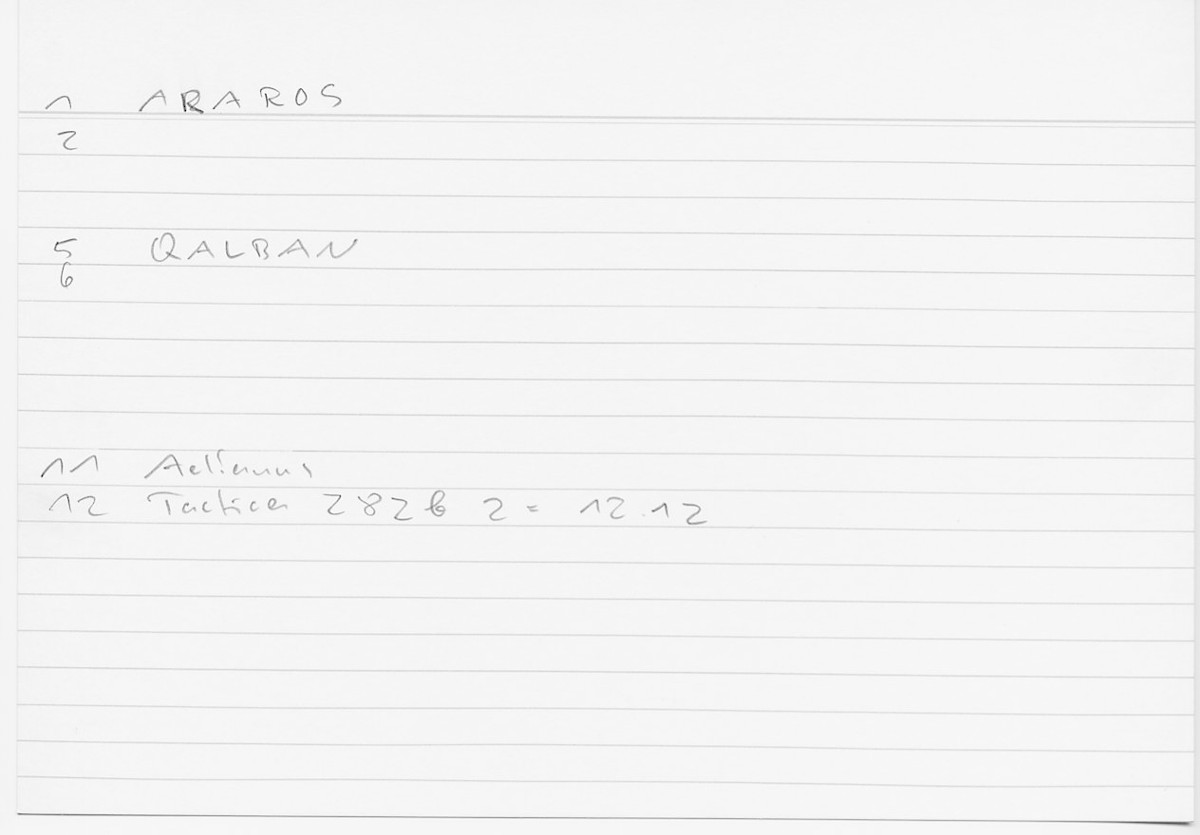 1 ARAROS
2
5 QALBAN
6
11 Aelianus
12 Tactica 282b 2 = 12.12